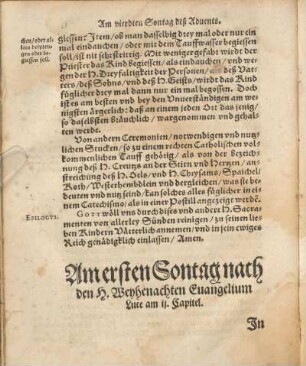 Am vierdten Sontag deß Aduents.
chen/oder also
begiessen soll.
giessen: Item/ ob man dasselbig drey mal oder nur ein
mal eindauchen/ oder mit dem Tauffwasser begiessen
soll/ ist nit sehr strittig. Mit weniger gefahr wirdt der
Priester das Kind begiessen/ als eindauchen/ vnd we-
gen der H. Dreyfaltigkeit der Personen/ als deß Vat-
ters/ deß Sohns/ vnd deß H. Geists/ wirdt das Kind
füglicher drey mal dann nur ein mal begossen. Doch
ist es am besten vnd bey den Vnuerständigen am we-
nigsten ärgerlich: daß an einem jeden Ort das jenig/
so daselbsten bräuchlich/ wargenommen vnd gehal-
ten werde.
Von andern Ceremonien/ notwendigen vnd nutz-
lichen Stucken/ so zu einem rechten Catholischen vol-
kommenlichen Tauff gehörig/ als von der bezeich-
nung deß H. Creutzs an der Stirn vnd Hertzen/ an-
streichung deß H. Oels/ vnd H. Chrysams/ Speichel/
Koth/ Westerhembdlen vnd dergleichen/ was sie be-
deuten vnd nutz seind/ kan solches alles füglicher in ei-
nem Catechismo: als in einer Postill angezeigt werdē.
EPILOGVS.
GOTT wöll vns durch dises vnd andere H. Sacra-
menten von allerley Sünden reinigen/ zu seinen lie-
ben Kindern Vätterlich annemen/ vnd in sein ewiges
Reich genädigklich einlassen/ Amen.
Am ersten Sontag nach
den H. Weyhenachten Euangelium
Luce am ij. Capitel.
In